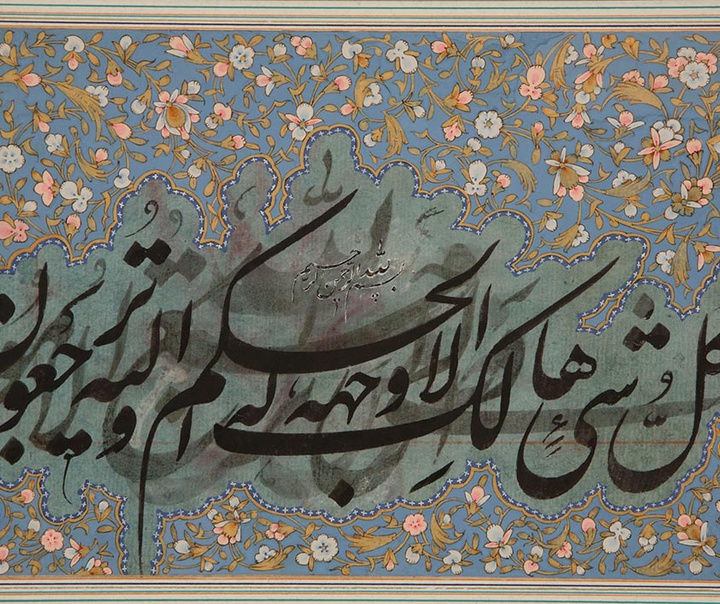 بسم الله الرحمن الرحيم
كل شئ هالك الا وجهه له الحكم واليه ترجعون